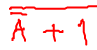 $\overline{\overline{A} + 1}$